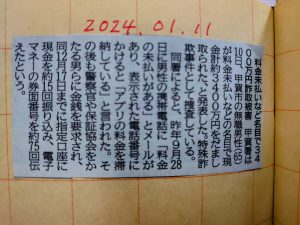 2024.01.11
料金未払いなど名目で34
00万円詐取被害 甲賀署は
10日、甲賀市の無職男性(69)
が料金未払いなどの名目で現
金計約3400万円をだまし
取られた、と発表した。特殊詐
欺事件として捜査している。
同署によると、昨年9月28
日に男性の携帯電話に「料金
の未払いがある」とメールが
あり、表示された電話番号に
かけると「アプリの料金を滞
納している」と言われた。そ
の後も警察官や保証協会をか
たる男らに金銭を要求され、
同12月17日までに指定口座に
現金を約15回振り込み、電子
マネーの券面番号を約75回伝
えたという。